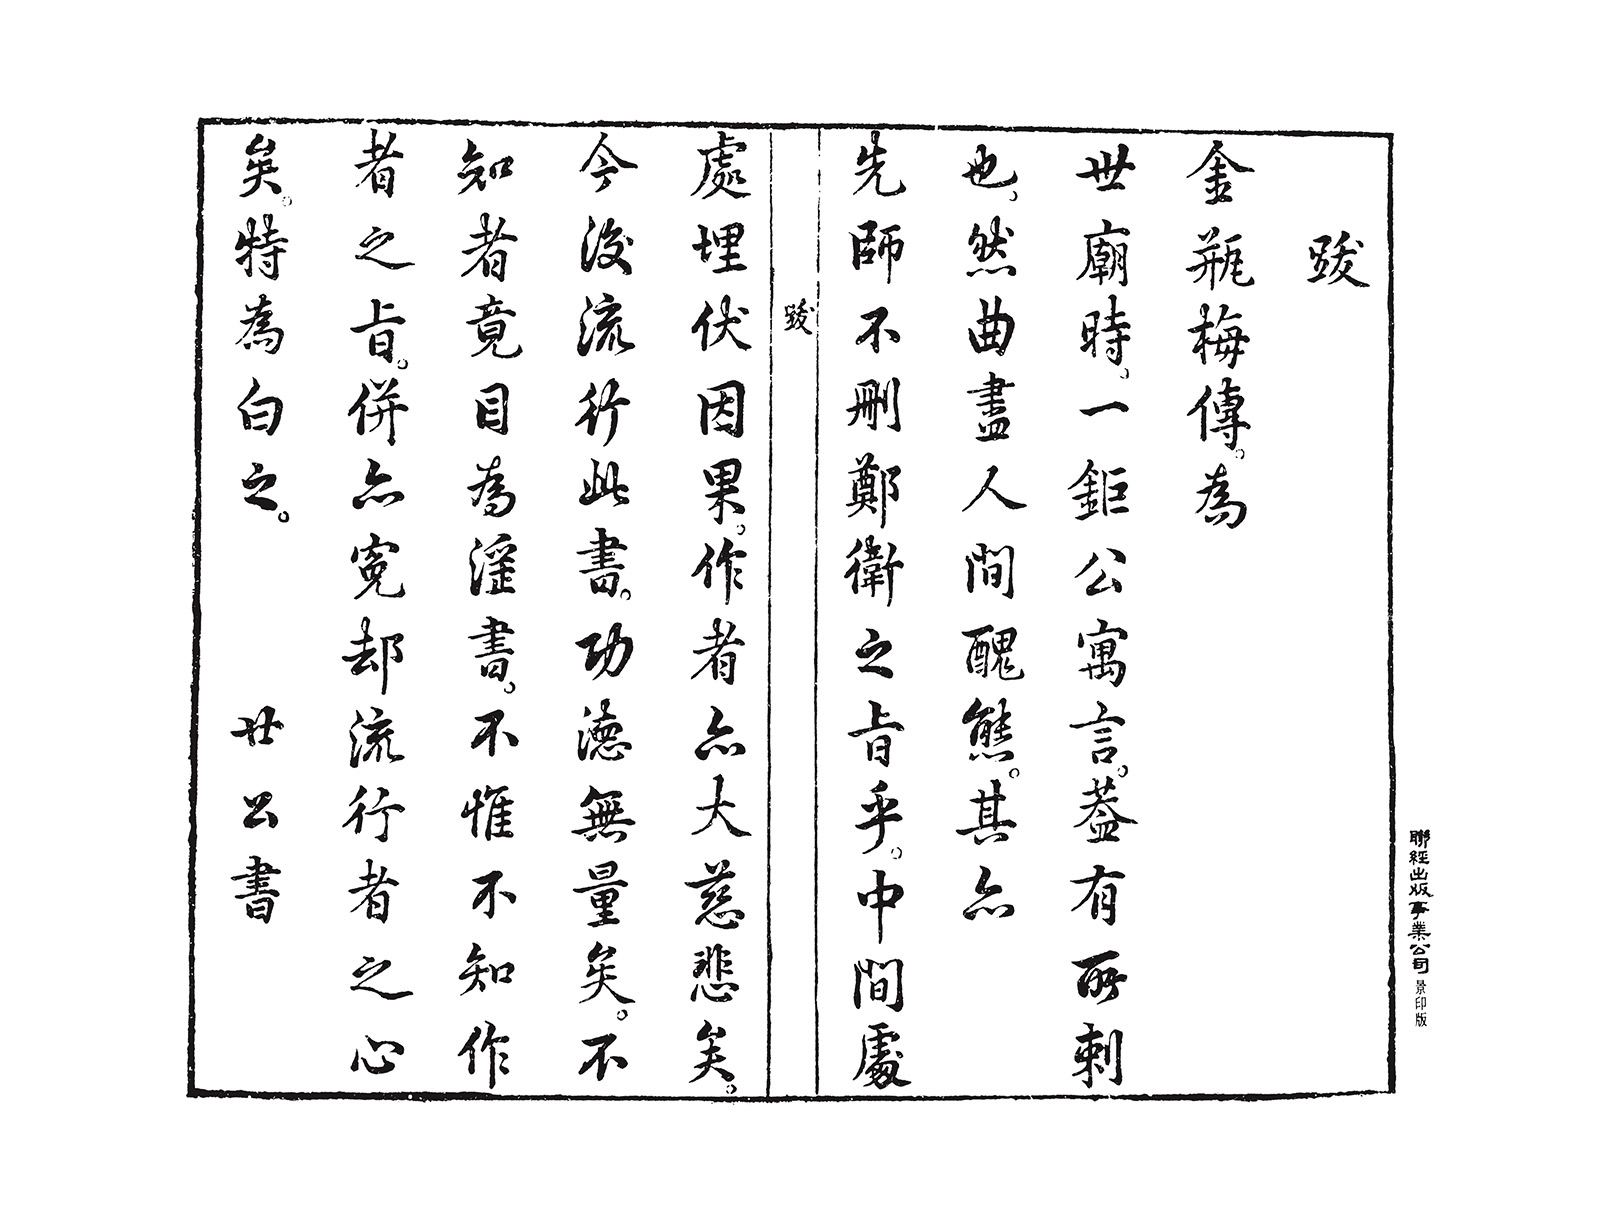 跋
金瓶梅傳。為
世廟時。一鉅公寓言。蓋有所刺
也。然曲盡人間醜態。其亦
先師不刪鄭衛之旨乎。中間處
跋
處埋伏因果。作者亦大慈悲矣。
今後流行此書。功德無量矣。不
知者竟目為淫書。不惟不知作
者之旨。併亦冤却流行者之心
矣。特為白之。 廿公書
聯經出版事業公司景印版